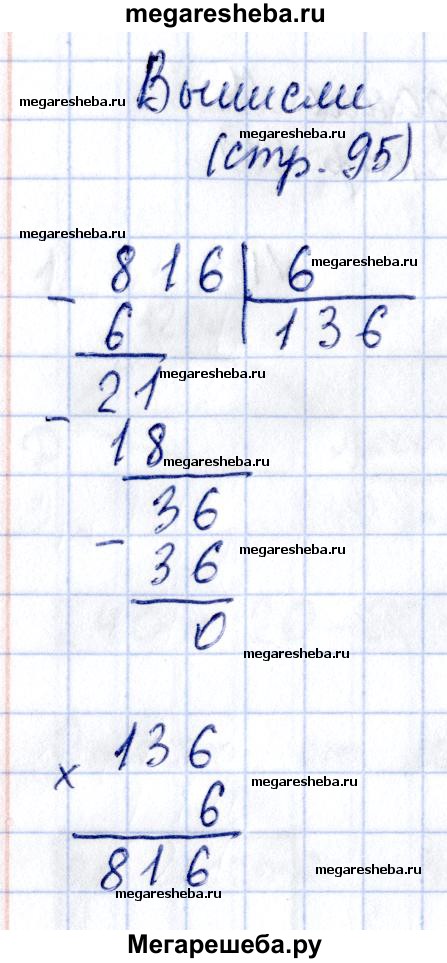 megaresheba.ru
Вычисли
megaresheba.ru
megaresheba.ru
(стр. 95)
megaresheba.ru
megaresheba.ru
- 816 | 6
6 136
megaresheba.ru
21
- 18
megaresheba.ru
36
- 36
megaresheba.ru
0
megaresheba.ru
136
x 6
megaresheba.ru
816
megaresheba.ru
megaresheba.ru
Мегарешеба.ру